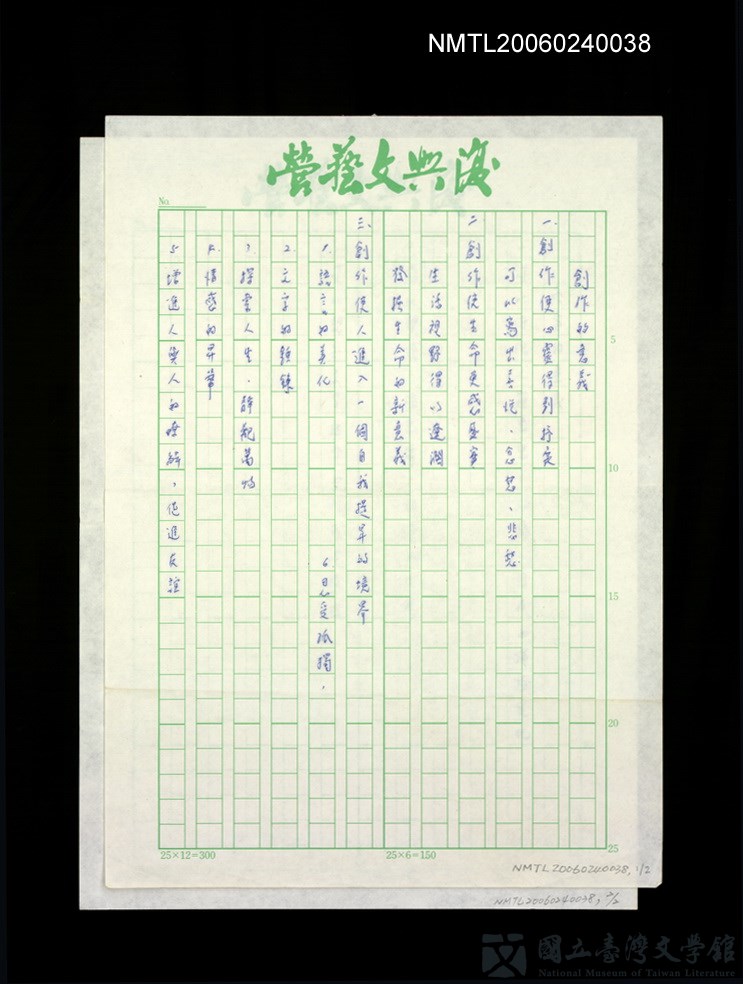 NMTL20060240038
營藝文興復
No.
創作的意義
一、創作使心靈得到抒突
可以寫出喜悅、忿怒、悲愁
二、創作使生命更感豐富
生活視野得以遼濶
發掘生命的新意義
三、創作使人進入一個自我提昇的境界
1. 語言的美化 6 忍受孤獨,
2. 文字的錘鍊
3. 探索人生,靜觀萬物
4. 情感的昇華
5. 增進人與人的瞭解,促進友誼
5
10
15
20
25
25×12=300
25×6=150
NMTL20060240038, 1/2
NMTL20060240038, 2/2
國立臺灣文學館
National Museum of Taiwan Literature